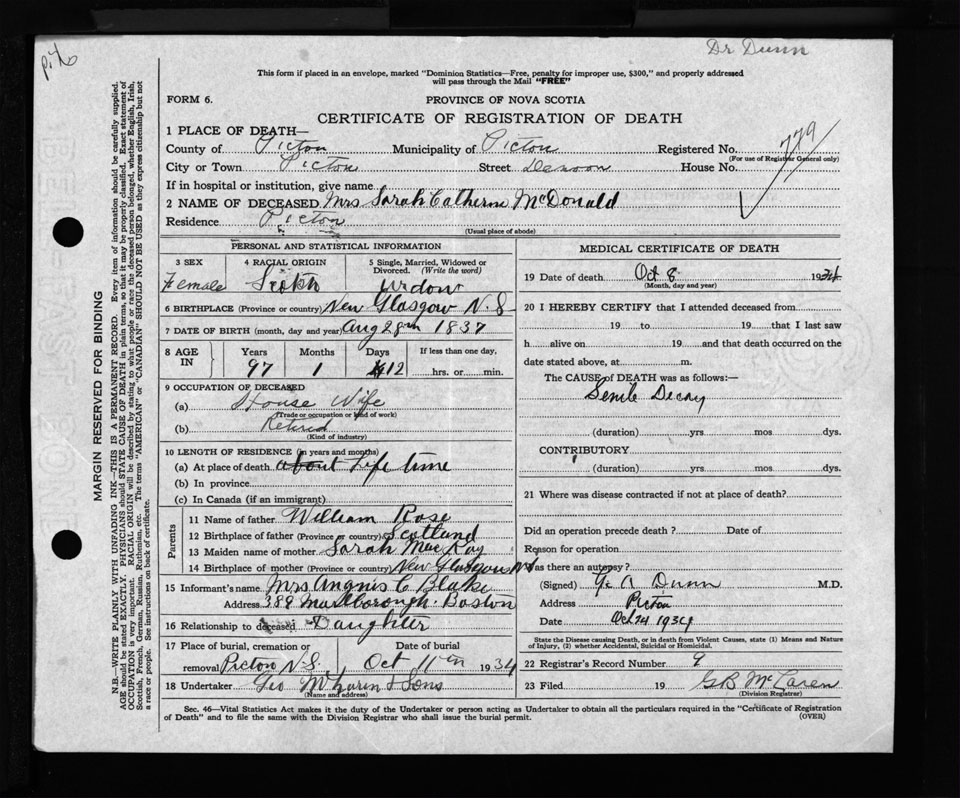 Dr Dunn
This form if placed in an envelope, marked "Dominion Statistics—Free, penalty for improper use, $300," and properly addressed
will pass through the Mail "FREE"
FORM 6.
PROVINCE OF NOVA SCOTIA
CERTIFICATE OF REGISTRATION OF DEATH
1 PLACE OF DEATH—
County of Picton Municipality of Picton Registered No. 779
(For use of Registrar General only)
City or Town Picton Street Denoon House No.
If in hospital or institution, give name
2 NAME OF DECEASED Mrs Sarah Catherine McDonald
Residence Picton
(Usual place of abode)
PERSONAL AND STATISTICAL INFORMATION
3 SEX 4 RACIAL ORIGIN 5 Single, Married, Widowed or
Divorced. (Write the word)
Female Scotch Widow
6 BIRTHPLACE (Province or country) New Glasgow N.S
7 DATE OF BIRTH (month, day and year) Aug 28th 1837
8 AGE IN Years Months Days If less than one day,
97 1 12 hrs. or min.
9 OCCUPATION OF DECEASED
(a) House Wife
(Trade or occupation or kind of work)
(b) Retired
(Kind of industry)
10 LENGTH OF RESIDENCE (in years and months)
(a) At place of death about Life time
(b) In province
(c) In Canada (if an immigrant)
Parents
11 Name of father William Rose
12 Birthplace of father (Province or country) Scotland
13 Maiden name of mother Sarah MacKay
14 Birthplace of mother (Province or country) New Glasgow NS
15 Informant's name Mrs Angnis C Blake
Address 388 Marlborough. Boston
16 Relationship to deceased Daughter
17 Place of burial, cremation or Date of burial
removal Picton N.S. Oct 11th 1934
18 Undertaker Geo & Sons
(Name and address)
MEDICAL CERTIFICATE OF DEATH
19 Date of death Oct 8 1934
(Month, day and year)
20 I HEREBY CERTIFY that I attended deceased from
19 to 19 that I last saw
h alive on 19 and that death occurred on the
date stated above, at m.
The CAUSE of DEATH was as follows:—
Senile Decay
(duration) yrs mos dys.
CONTRIBUTORY
(duration) yrs mos dys.
21 Where was disease contracted if not at place of death?
Did an operation precede death? Date of
Reason for operation
Was there an autopsy?
(Signed) Dunn M.D.
Address Picton
Date Oct 24 1934
State the Disease causing Death, or in death from Violent Causes, state (1) Means and Nature
of Injury, (2) whether Accidental, Suicidal or Homicidal.
22 Registrar's Record Number 9
23 Filed 19 GB McLaren
(Division Registrar)
Sec. 46—Vital Statistics Act makes it the duty of the Undertaker or person acting as Undertaker to obtain all the particulars required in the "Certificate of Registration
of Death" and to file the same with the Division Registrar who shall issue the burial permit.
(OVER)
MARGIN RESERVED FOR BINDING
N.B.—WRITE PLAINLY WITH UNFADING INK—THIS IS A PERMANENT RECORD. Every item of information should be carefully supplied.
AGE should be stated EXACTLY. PHYSICIANS should STATE CAUSE OF DEATH in plain terms, so that it may be properly classified. Exact statement of
OCCUPATION is very important. RACIAL ORIGIN will be described by stating to what people or race the deceased person belonged, whether English, Irish,
Scottish, French, German, Russian, Ruthenian, etc. The terms "AMERICAN" or "CANADIAN" SHOULD NOT BE USED as they express citizenship but not
a race or people. See instructions on back of certificate.